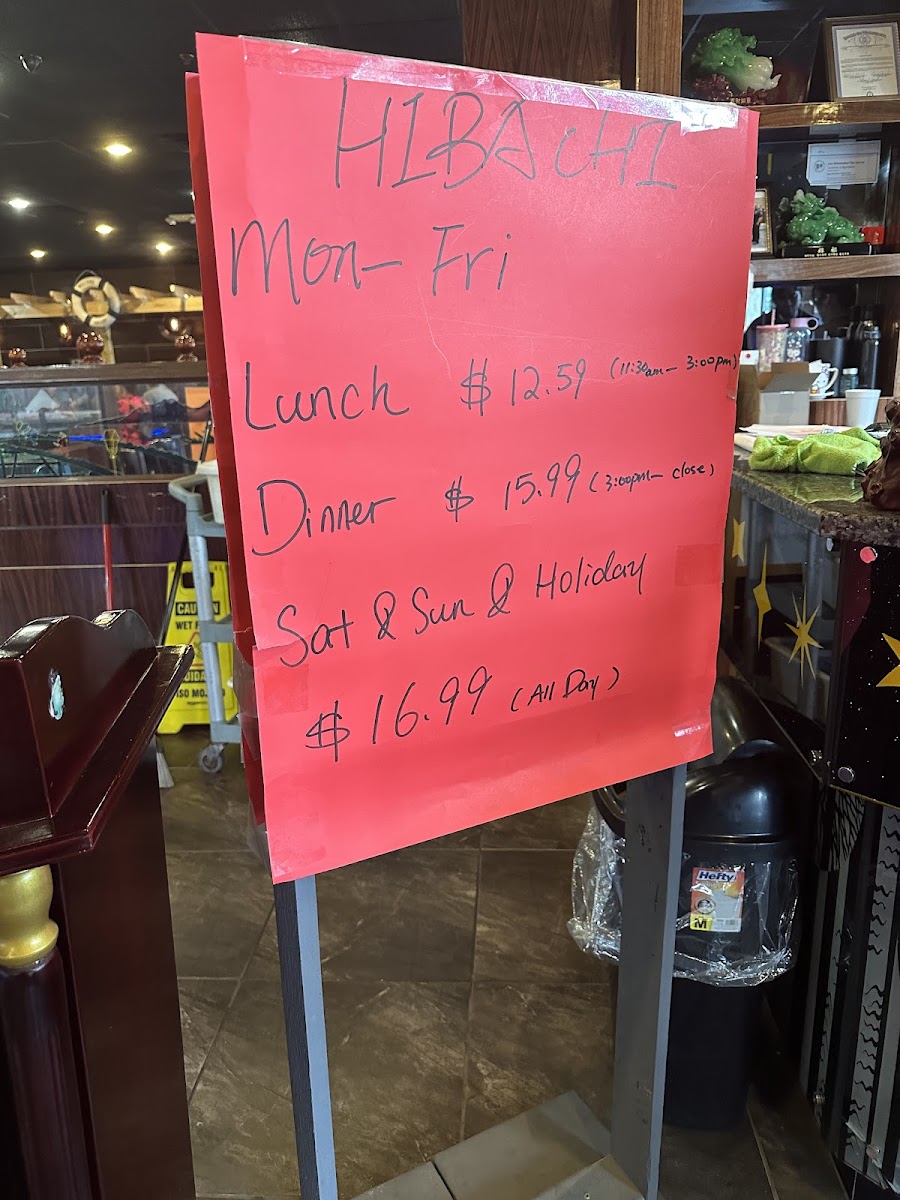 HIBAcHI
Mon- Fri
Lunch $ 12.59 (11:30am- 3:00pm)
Dinner $ 15.99 (3:00pm- close)
Sat & Sun & Holiday
$ 16.99 (All Day)
CAUTION
WET
Hefty
M